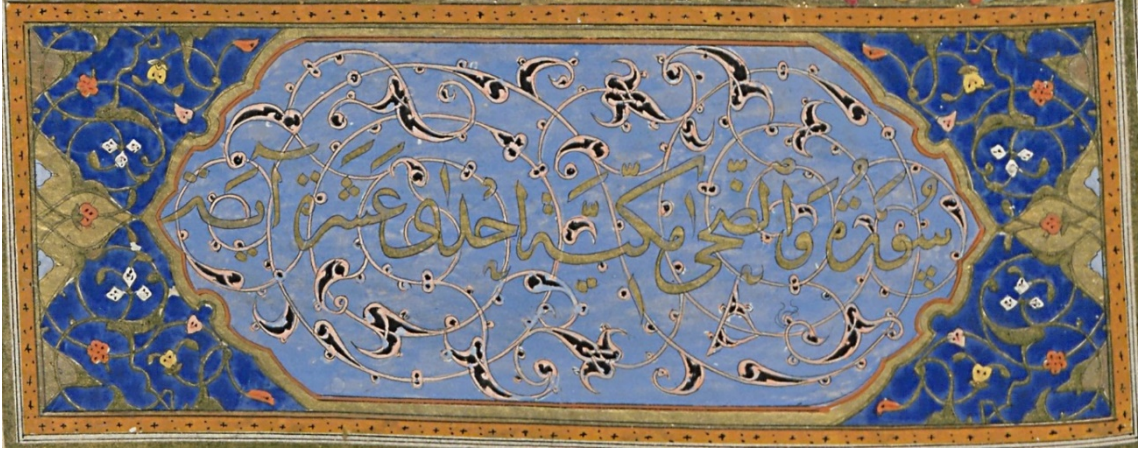 سُورَةُ وَالضُّحَى مَكِّيَّة إِحْدَى عَشْرَة آيَة